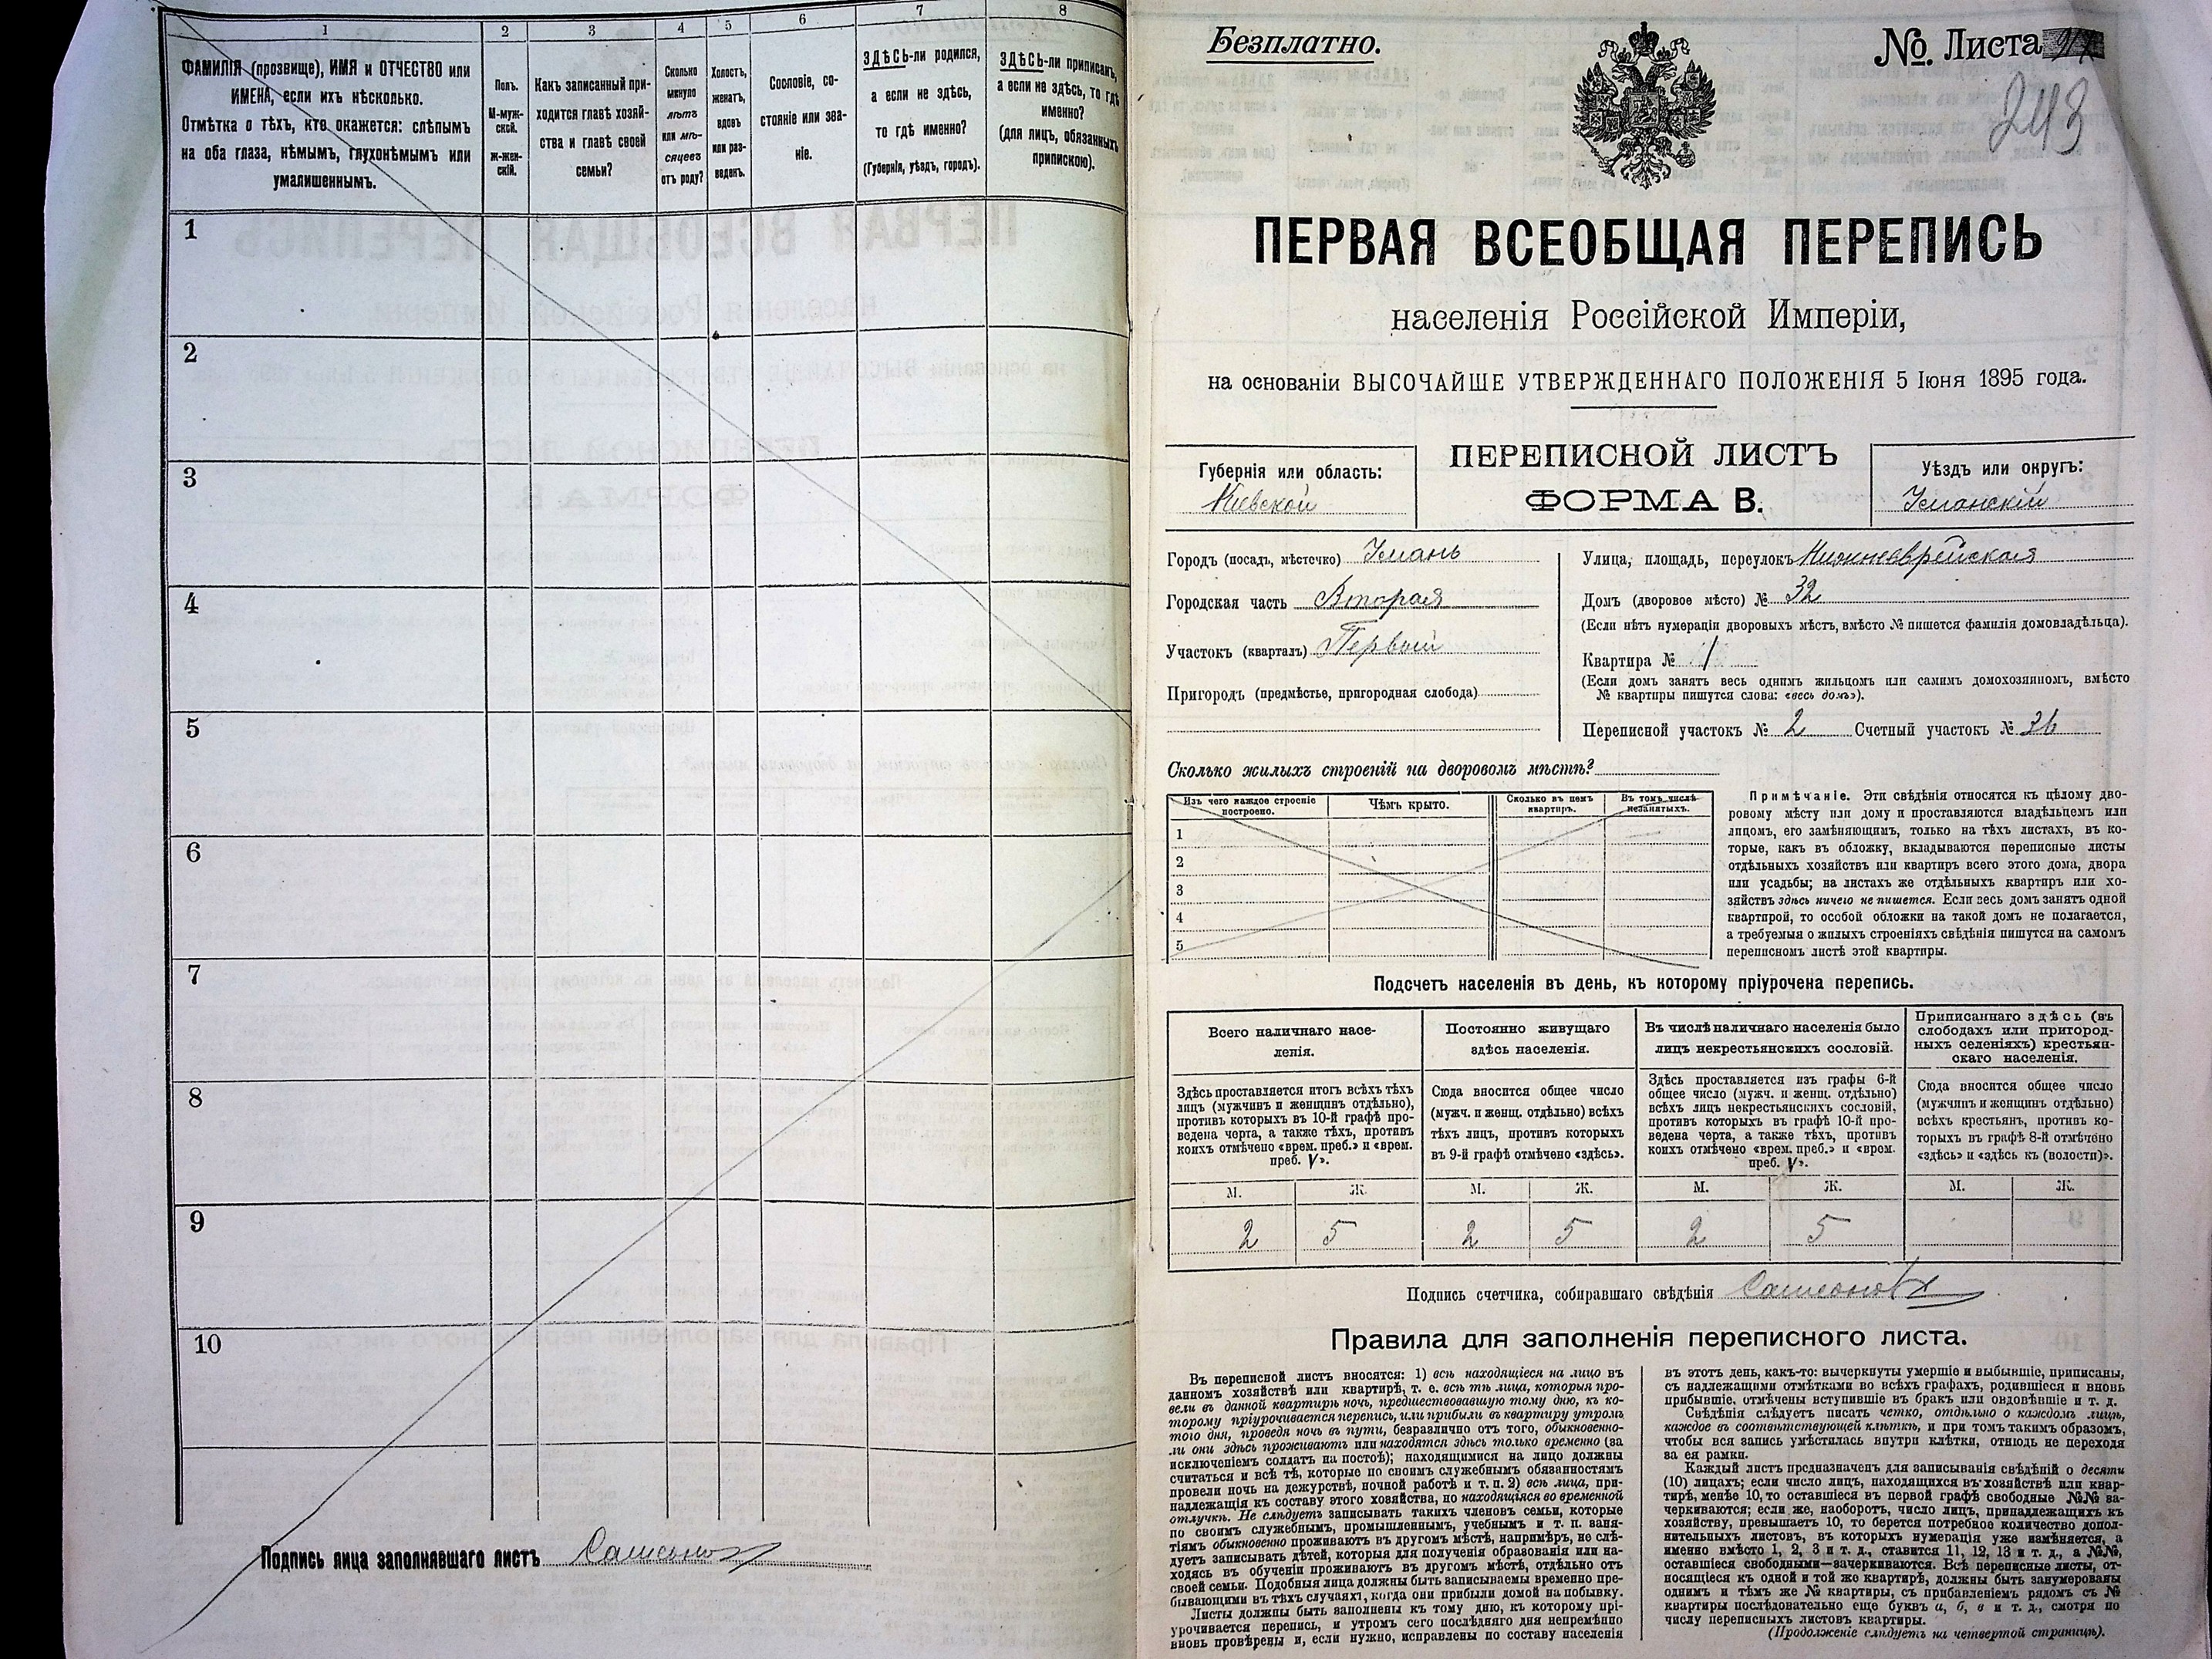 1
2
3
4
5
6
7
8
ФАМИЛІЯ (прозвище), ИМЯ и ОТЧЕСТВО или
ИМЕНА, если ихъ нѣсколько.
Отмѣтка о тѣхъ, кто окажется: слѣпымъ
на оба глаза, нѣмымъ, глухонѣмымъ или
умалишеннымъ.
Полъ.
М-муж-
ской.
ж-жен-
скій.
Какъ записанный при-
ходится главѣ хозяй-
ства и главѣ своей
семьи?
Сколько
минуло
лѣтъ
или мѣ-
сяцевъ
отъ роду?
Холостъ,
женатъ,
вдовъ
или раз-
веденъ.
Сословіе, со-
стояніе или зва-
ніе.
ЗДѢСЬ-ли родился,
а если не здѣсь,
то гдѣ именно?
(Губернія, уѣздъ, городъ).
ЗДѢСЬ-ли приписанъ,
а если не здѣсь, то гдѣ
именно?
(для лицъ, обязанныхъ
припискою).
1
2
3
4
5
6
7
8
9
10
Подпись лица заполнявшаго листъ
Безплатно.
№ Листа
243
ПЕРВАЯ ВСЕОБЩАЯ ПЕРЕПИСЬ
населенія Россійской Имперіи,
на основаніи ВЫСОЧАЙШЕ УТВЕРЖДЕННАГО ПОЛОЖЕНІЯ 5 Іюня 1895 года.
Губернія или область:
Кіевской
ПЕРЕПИСНОЙ ЛИСТЪ
ФОРМА В.
Уѣздъ или округъ:
Уманскій
Городъ (посадъ, мѣстечко) Умань
Городская часть Вторая
Участокъ (кварталъ) Первый
Пригородъ (предмѣстье, пригородная слобода)
Улица, площадь, переулокъ Нижнееврейская
Домъ (дворовое мѣсто) № 32
(Если нѣтъ нумераціи дворовыхъ мѣстъ, вмѣсто № пишется фамилія домовладѣльца).
Квартира № 1
(Если домъ занятъ весь однимъ жильцомъ или самимъ домохозяиномъ, вмѣсто
№ квартиры пишутся слова: «весь домъ»).
Переписной участокъ № 2 Счетный участокъ № 36
Сколько жилыхъ строеній на дворовомъ мѣстѣ?
Изъ чего каждое строеніе
построено.
Чѣмъ крыто.
Сколько въ немъ
квартиръ.
Въ томъ числѣ
незанятыхъ.
1
2
3
4
5
Примѣчаніе. Эти свѣдѣнія относятся къ цѣлому дво-
ровому мѣсту или дому и проставляются владѣльцемъ или
лицомъ, его замѣняющимъ, только на тѣхъ листахъ, въ ко-
торые, какъ въ обложку, вкладываются переписные листы
отдѣльныхъ хозяйствъ или квартиръ всего этого дома, двора
или усадьбы; на листахъ же отдѣльныхъ квартиръ или хо-
зяйствъ здѣсь ничего не пишется. Если весь домъ занятъ одной
квартирой, то особой обложки на такой домъ не полагается,
а требуемыя о жилыхъ строеніяхъ свѣдѣнія пишутся на самомъ
переписномъ листѣ этой квартиры.
Подсчетъ населенія въ день, къ которому пріурочена перепись.
Всего наличнаго насе-
ленія.
Постоянно живущаго
здѣсь населенія.
Въ числѣ наличнаго населенія было
лицъ некрестьянскихъ сословій.
Приписаннаго здѣсь (въ
слободахъ или пригород-
ныхъ селеніяхъ) крестьян-
скаго населенія.
Здѣсь проставляется итогъ всѣхъ тѣхъ
лицъ (мужчинъ и женщинъ отдѣльно),
противъ которыхъ въ 10-й графѣ про-
ведена черта, а также тѣхъ, противъ
коихъ отмѣчено «врем. преб.» и «врем.
преб. V».
Сюда вносится общее число
(мужч. и женщ. отдѣльно) всѣхъ
тѣхъ лицъ, противъ которыхъ
въ 9-й графѣ отмѣчено «здѣсь».
Здѣсь проставляется изъ графы 6-й
общее число (мужч. и женщ. отдѣльно)
всѣхъ лицъ некрестьянскихъ сословій,
противъ которыхъ въ графѣ 10-й про-
ведена черта, а также тѣхъ, противъ
коихъ отмѣчено «врем. преб.» и «врем.
преб. V».
Сюда вносится общее число
(мужчинъ и женщинъ отдѣльно)
всѣхъ крестьянъ, противъ ко-
торыхъ въ графѣ 8-й отмѣчено
«здѣсь» и «здѣсь къ (волости)».
М. Ж. М. Ж. М. Ж. М. Ж.
2 5 2 5 2 5
Подпись счетчика, собиравшаго свѣдѣнія
Правила для заполненія переписного листа.
Въ переписной листъ вносятся: 1) всѣ находящіеся на лицо въ
данномъ хозяйствѣ или квартирѣ, т. е. всѣ тѣ лица, которыя про-
вели въ данной квартирѣ ночь, предшествовавшую тому дню, къ ко-
торому пріурочивается перепись, или прибыли въ квартиру утромъ
того дня, проведя ночь въ пути, безразлично отъ того, обыкновенно-
ли они здѣсь проживаютъ или находятся здѣсь только временно (за
исключеніемъ солдатъ на постоѣ); находящимися на лицо должны
считаться и всѣ тѣ, которые по своимъ служебнымъ обязанностямъ
провели ночь на дежурствѣ, ночной работѣ и т. п. 2) всѣ лица, при-
надлежащія къ составу этого хозяйства, но находящіяся во временной
отлучкѣ. Не слѣдуетъ записывать такихъ членовъ семьи, которые
по своимъ служебнымъ, промышленнымъ, учебнымъ и т. п. заня-
тіямъ обыкновенно проживаютъ въ другомъ мѣстѣ, напримѣръ, не слѣ-
дуетъ записывать дѣтей, которыя для полученія образованія или на-
ходясь въ обученіи проживаютъ въ другомъ мѣстѣ, отдѣльно отъ
своей семьи. Подобныя лица должны быть записываемы временно пре-
бывающими въ тѣхъ случаяхъ, когда они прибыли домой на побывку.
Листы должны быть заполнены къ тому дню, къ которому прі-
урочивается перепись, и утромъ сего послѣдняго дня непремѣнно
вновь провѣрены и, если нужно, исправлены по составу населенія
въ этотъ день, какъ-то: вычеркнуты умершіе и выбывшіе, приписаны,
съ надлежащими отмѣтками во всѣхъ графахъ, родившіеся и вновь
прибывшіе, отмѣчены вступившіе въ бракъ или овдовѣвшіе и т. д.
Свѣдѣнія слѣдуетъ писать четко, отдѣльно о каждомъ лицѣ,
каждое въ соотвѣтствующей клѣткѣ, и при томъ такимъ образомъ,
чтобы вся запись умѣстилась внутри клѣтки, отнюдь не переходя
за ея рамки.
Каждый листъ предназначенъ для записыванія свѣдѣній о десяти
(10) лицахъ; если число лицъ, находящихся въ хозяйствѣ или квар-
тирѣ, менѣе 10, то оставшіеся въ первой графѣ свободные №№ за-
черкиваются; если же, наоборотъ, число лицъ, принадлежащихъ къ
хозяйству, превышаетъ 10, то берется потребное количество допол-
нительныхъ листовъ, въ которыхъ нумерація уже измѣняется, а
именно вмѣсто 1, 2, 3 и т. д., ставится 11, 12, 13 и т. д., а №№,
оставшіеся свободными—зачеркиваются. Всѣ переписные листы, от-
носящіеся къ одной и той же квартирѣ, должны быть занумерованы
однимъ и тѣмъ же № квартиры, съ прибавленіемъ рядомъ съ №
квартиры послѣдовательно еще буквъ а, б, в и т. д., смотря по
числу переписныхъ листовъ квартиры.
(Продолженіе слѣдуетъ на четвертой страницѣ).